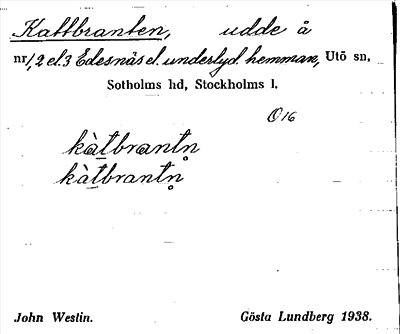 Kattbranten, udde å
nr 1, 2 el. 3 Edesnäs el. underlyd. hemman, Utö sn,
Sotholms hd, Stockholms l.
O 16
kàtbrantn̥
kàtbrantn̥
John Westin. Gösta Lundberg 1938.